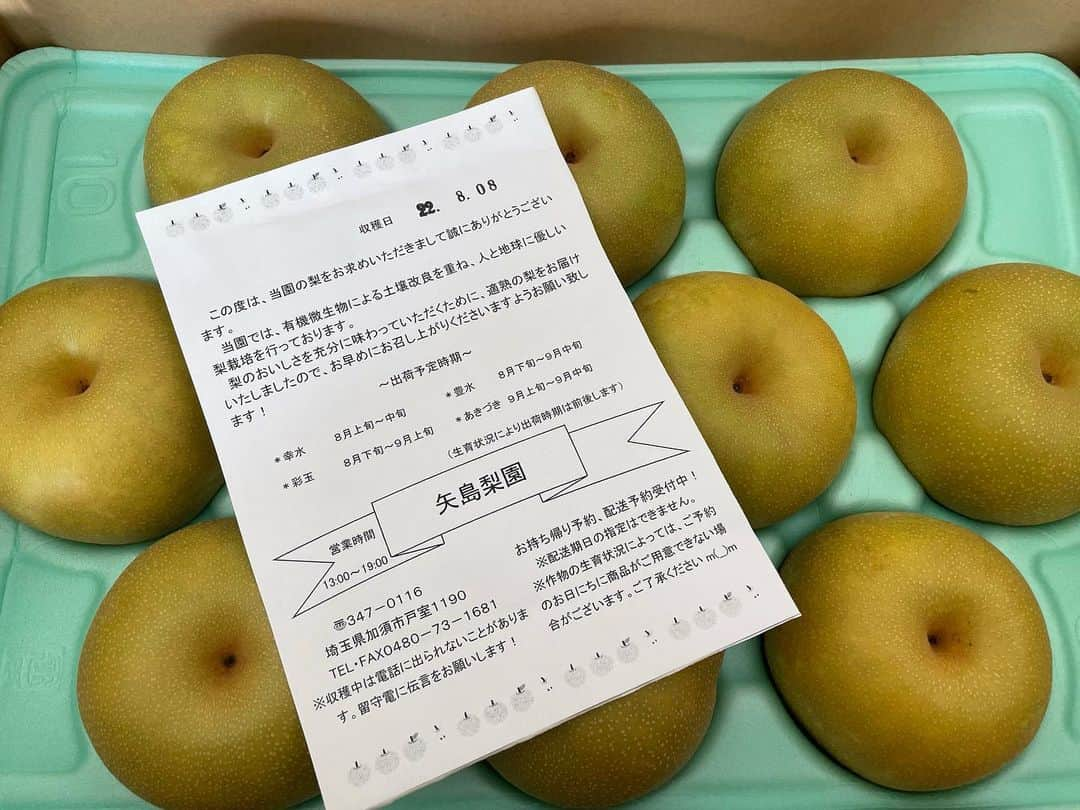 収穫日 22. 8.08
この度は、当園の梨をお求めいただきまして誠にありがとうござい
ます。
当園では、有機微生物による土壌改良を重ね、人と地球に優しい
梨栽培を行っております。
梨のおいしさを充分に味わっていただくために、適熟の梨をお届け
いたしましたので、お早めにお召し上がりくださいますようお願い致し
ます！
～出荷予定時期～
*幸水 8月上旬～中旬 *豊水 8月下旬～9月中旬
*彩玉 8月下旬～9月上旬 *あきづき 9月上旬～9月中旬
（生育状況により出荷時期は前後します）
矢島梨園
営業時間
13:00～19:00
〠347－0116
埼玉県加須市戸室1190
TEL・FAX0480－73－1681
※収穫中は電話に出られないことがありま
す。留守電に伝言をお願いします！
お持ち帰り予約、配送予約受付中！
※配送期日の指定はできません。
※作物の生育状況によっては、ご予約
のお日にちに商品がご用意できない場
合がございます。ご了承ください m(_)m
10